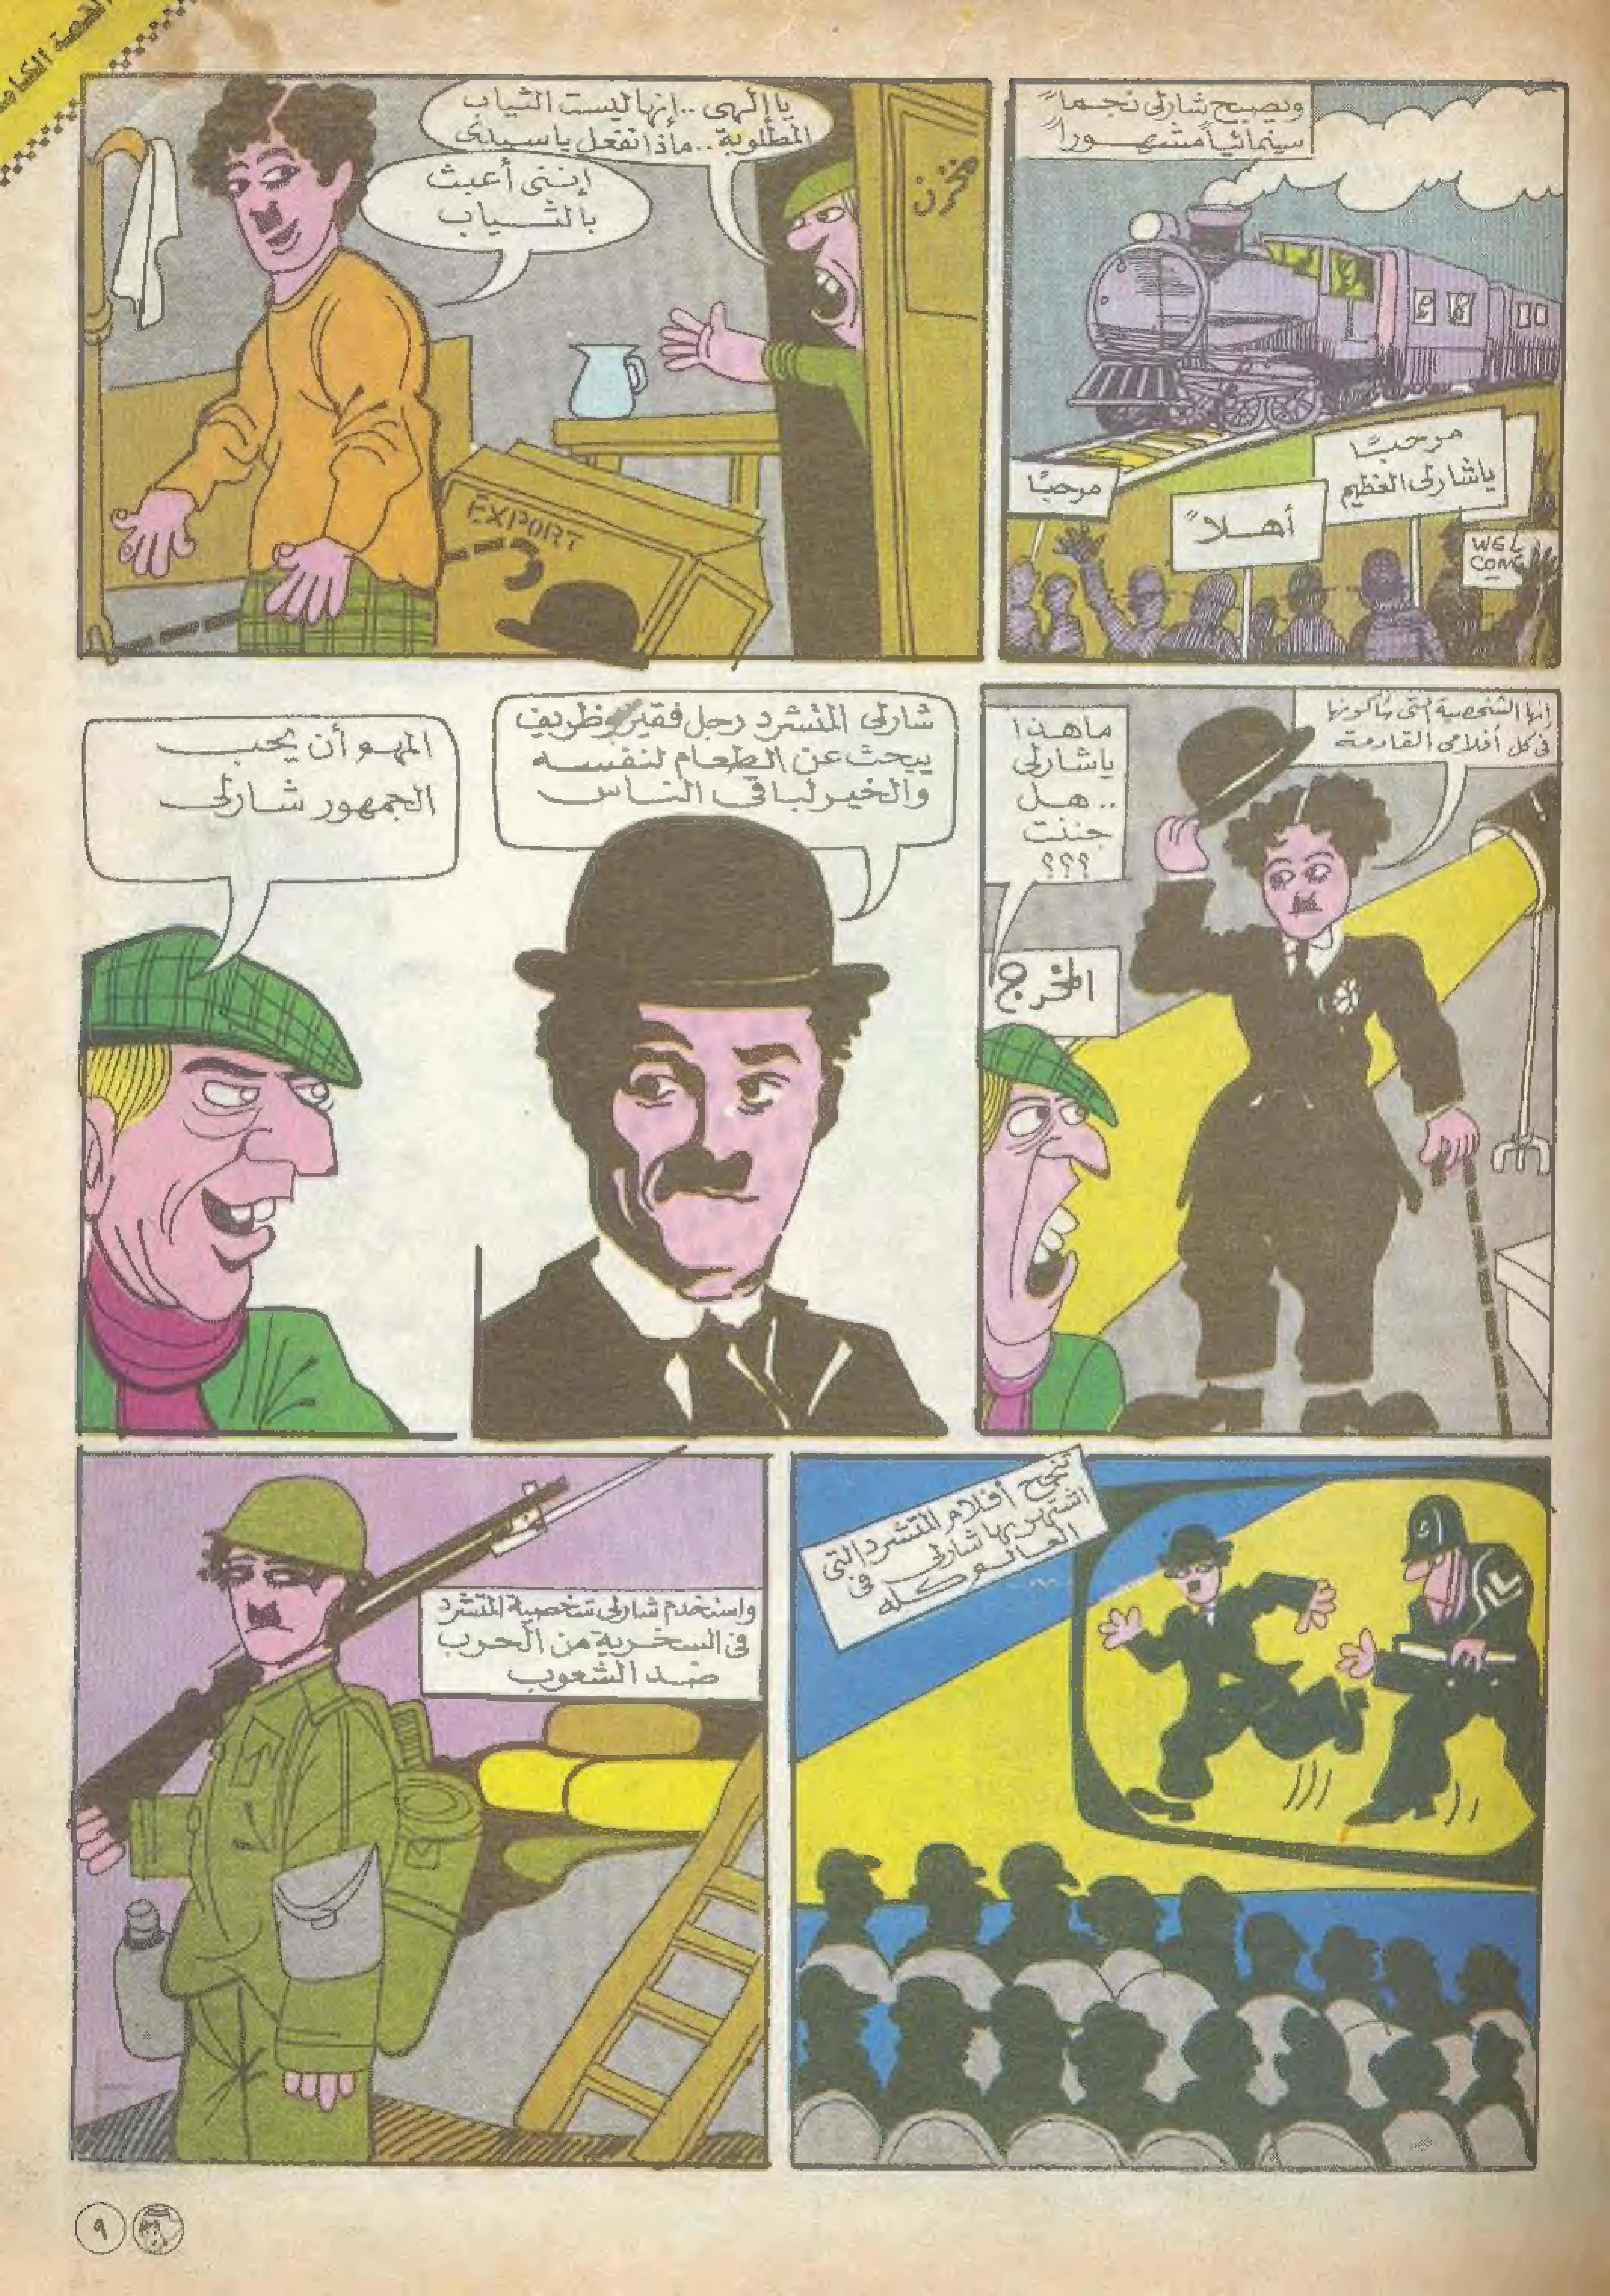 القصة
ويصبح شارلى نجماً
سينمائياً مشهوراً
مرحبًا
ياشارلى العظيم
أهلاً
مرحبًا
WEL
COME
يا إلهى .. إنها ليست الثياب
المطلوبة .. ماذا تفعل يا سيدى
إننى أعبث
بالثياب
مخزن
EXPORT
إنها الشخصية التى سأكونها
فى كل أفلامى القادمة
ما هذا
ياشارلى
.. هل
جننت
؟؟؟
المخرج
شارلى المتشرد رجل فقير وظريف
يبحث عن الطعام لنفسه
والخير لباقى الناس
المهم أن يحب
الجمهور شارلى
تنجح أفلام المتشرد التى
اشتهر بها شارلى فى
العالم كله
واستخدم شارلى شخصية المتشرد
فى السخرية من الحرب
ضد الشعوب
٩